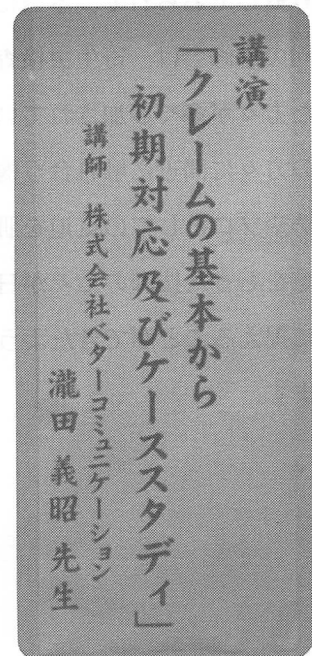 講演
「クレームの基本から
初期対応及びケーススタディ」
講師 株式会社ベターコミュニケーション
瀧田 義昭 先生